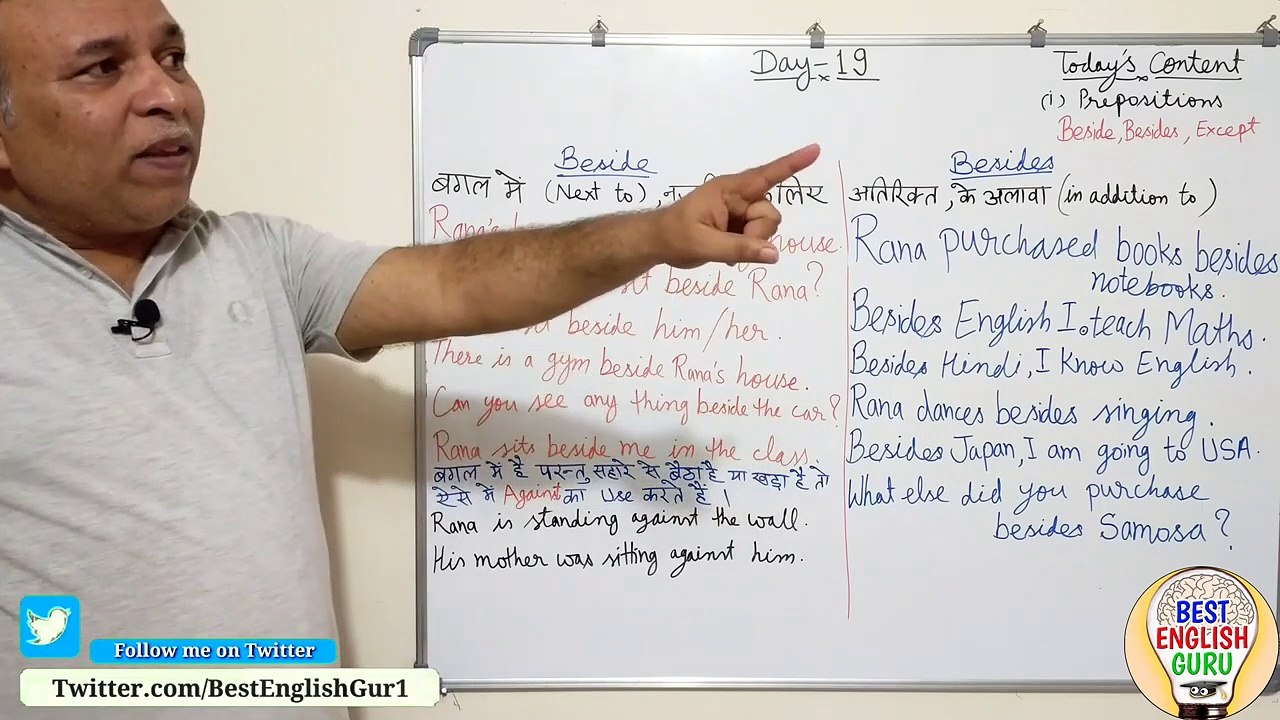 Day-19
Today's Content
(i) Prepositions
Beside, Besides, Except
Beside
बगल में (Next to), लिए
Rana's house.
sit beside Rana?
beside him/her.
There is a gym beside Rana's house.
Can you see any thing beside the car?
Rana sits beside me in the class.
बगल में है परन्तु सहारे से बैठा है या खड़ा है तो
ऐसे में Against का Use करते हैं ।
Rana is standing against the wall.
His mother was sitting against him.
Besides
अतिरिक्त, के अलावा (in addition to)
Rana purchased books besides
notebooks.
Besides English I teach Maths.
Besides Hindi, I Know English.
Rana dances besides singing.
Besides Japan, I am going to USA.
What else did you purchase
besides Samosa?
Follow me on Twitter
Twitter.com/BestEnglishGur1
BEST
ENGLISH
GURU